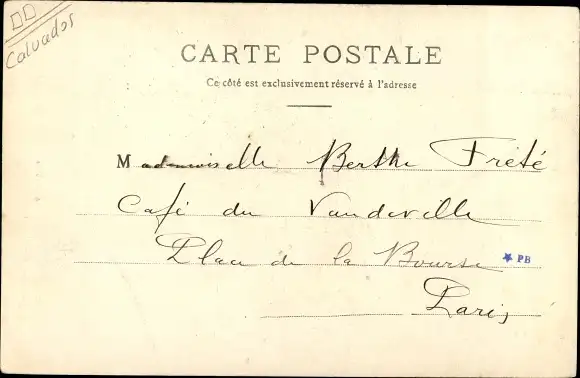 Calvados
CARTE POSTALE
Ce côté est exclusivement réservé à l'adresse
Mademoiselle Berthe Frété
Café du Vaudeville
Place de la Bourse
PB
Paris